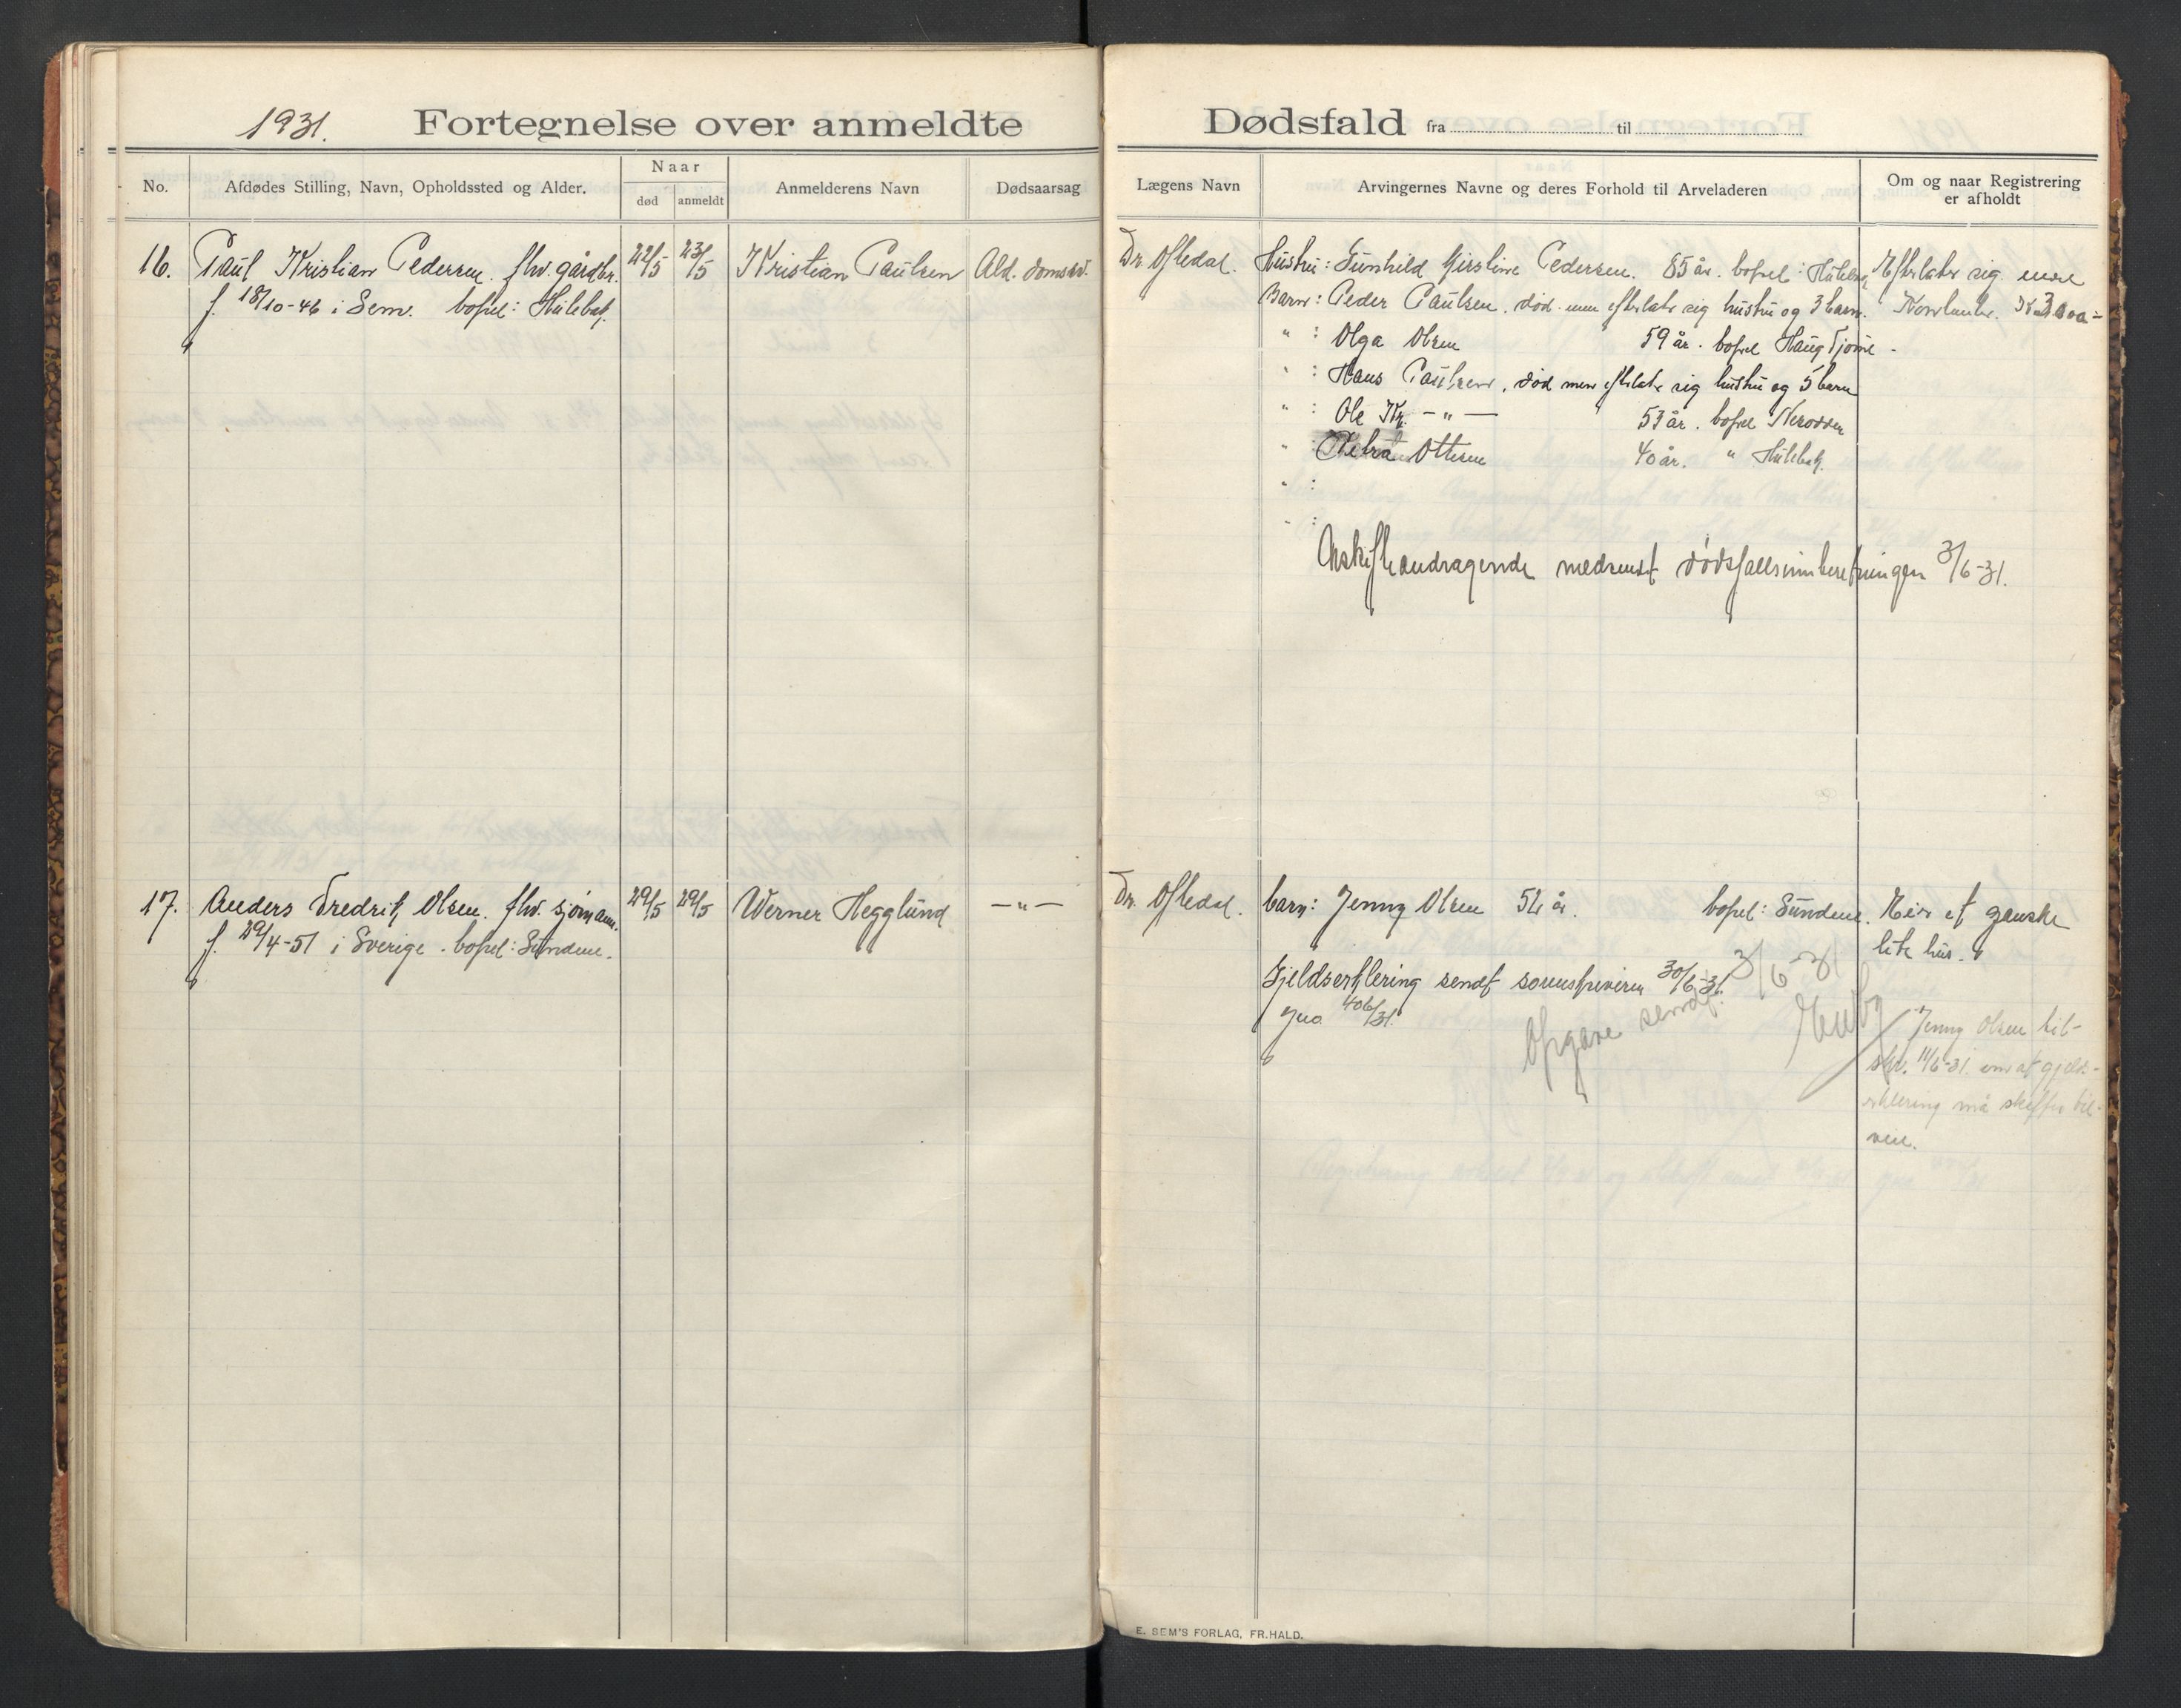 1931. Fortegnelse over anmeldte Dødsfald fra til
No. Afdødes Stilling, Navn, Opholdssted og Alder. Naar død anmeldt Anmelderens Navn Dødsaarsag Lægens Navn Arvingernes Navne og deres Forhold til Arveladeren Om og naar Registrering er afholdt
16. Paul Kristian Pedersen. fhv. gårdbr. 22/5 23/5 Kristian Paulsen Ald. domssv. Dr. Oftedal. Hustru: Gunhild Kirstine Pedersen. 85 år. bopel: Hulebak, Efterlater sig
f. 18/10-46 i Sem. bopel: Hulebak. Barn: Peder Paulsen. död men efterlater sig hustru og 3 barn.
" : Olga Olsen 59 år. bopel Haug Tjöme -
" : Hans Paulsen, död men efterlater sig hustru og 5 barn
" : Ole Kr. - " - 53 år. bopel Nerodden
" : Petra Ottesen 40 år. " Hulebak.
" :
" :
Uskifteandragende medsendt dödsfallsinnberetningen 3/6-31.
17. Anders Fredrik Olsen. fhv. sjömann. 29/5 29/5 Werner Hegglund - " - Dr. Oftedal. barn: Jenny Olsen 54 år. bopel: Sundene. Eier et ganske
f. 29/4-51 i Sverige. bopel: Sundene. lite hus.
Gjeldserklering sendt sorenskriveren 30/6-31.
Jno. 406/31.
Opgave sendt. 3/6-31
Jenny Olsen til-
skr. 11/6-31. om at gjelds-
erklering må skaffes til-
veie.
E. SEM'S FORLAG, FR.HALD.